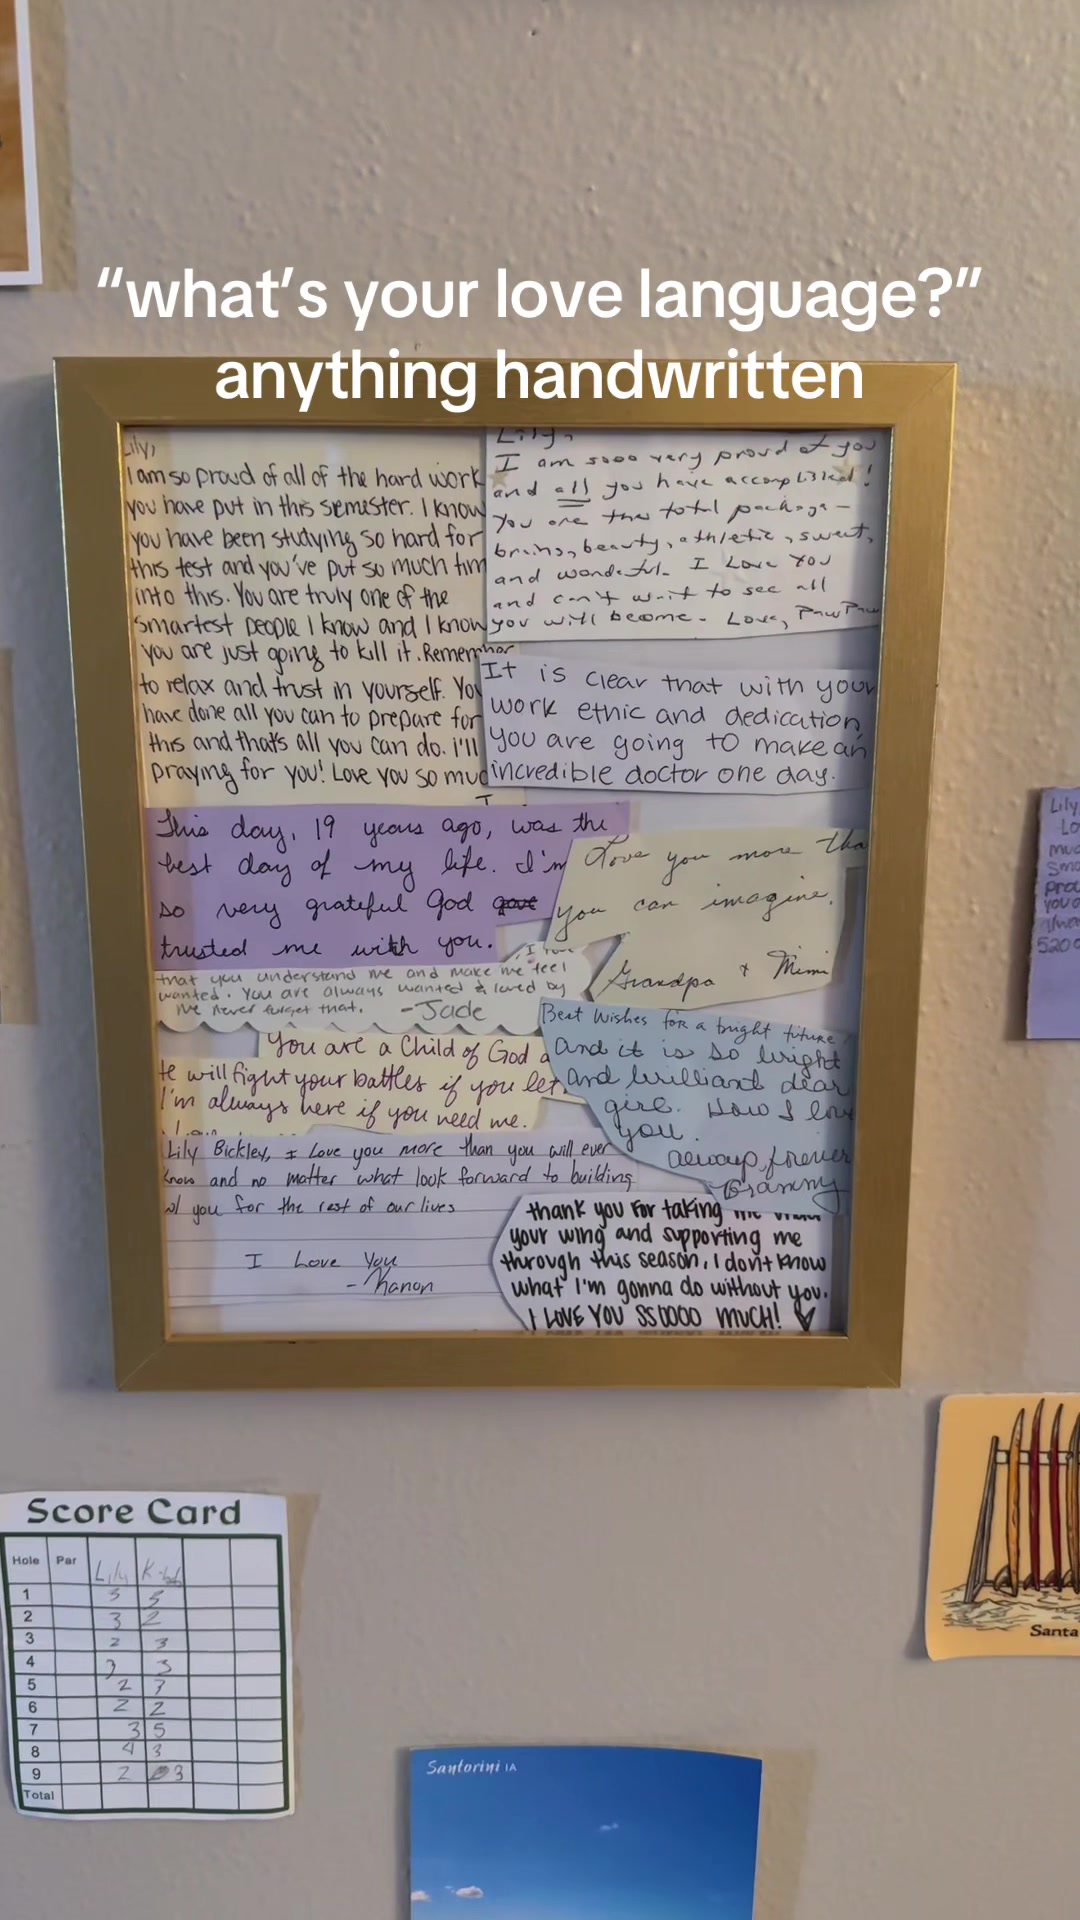 “what’s your love language?”
anything handwritten
Lily,
I am so proud of all of the hard work
you have put in this semester. I know
you have been studying so hard for
this test and you've put so much tim
into this. You are truly one of the
smartest people I know and I know
you are just going to kill it. Remember
to relax and trust in yourself. You
have done all you can to prepare for
this and that's all you can do. i'll
praying for you! Love you so muc
Lily,
I am sooo very proud of you
and all you have accomplished!
You are the total package -
brains, beauty, athletic, sweet,
and wonderful. I Love You
and can't wait to see all
you will become. Love, PawPaw
It is clear that with your
work ethic and dedication,
you are going to make an
incredible doctor one day.
This day, 19 years ago, was the
best day of my life. I'm
so very grateful God gave
trusted me with you.
Love you more tha
you can imagine.
Grandpa & Mimi
, I love
that you understand me and make me feel
wanted. You are always wanted & loved by
me never forget that. -Jade
You are a Child of God a
He will fight your battles if you let
I'm always here if you need me.
Best Wishes for a bright future
and it is so bright
and brilliant dear
girl. How I love
you.
always, forever
Grammy
Lily Bickley, I Love you more than you will ever
know and no matter what look forward to building
w/ you for the rest of our lives
I Love You
- Kanon
thank you for taking me under
your wing and supporting me
through this season, I don't know
what I'm gonna do without you.
I LOVE YOU SSOOOO MUCH!
Lily
Lo
muc
Sma
prou
you a
alwa
520
Score Card
Hole Par Lily
1 3 5
2 3 2
3 2 3
4 3 3
5 2 7
6 2 2
7 3 5
8 4 3
9 2 3
Total
Santa
Santorini IA